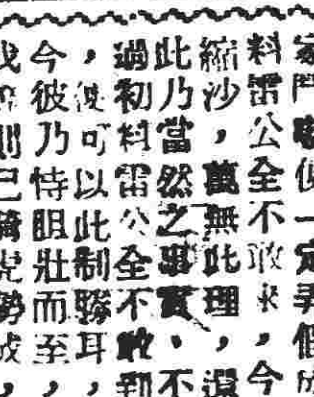 家鬥
料雷公全不敢來，今
縮沙，萬無此理，還
此乃當然之事實，不
過初料雷公全不敢到
，便可以此制勝耳，
今彼乃恃胆壯而至，
則已騎虎勢成，